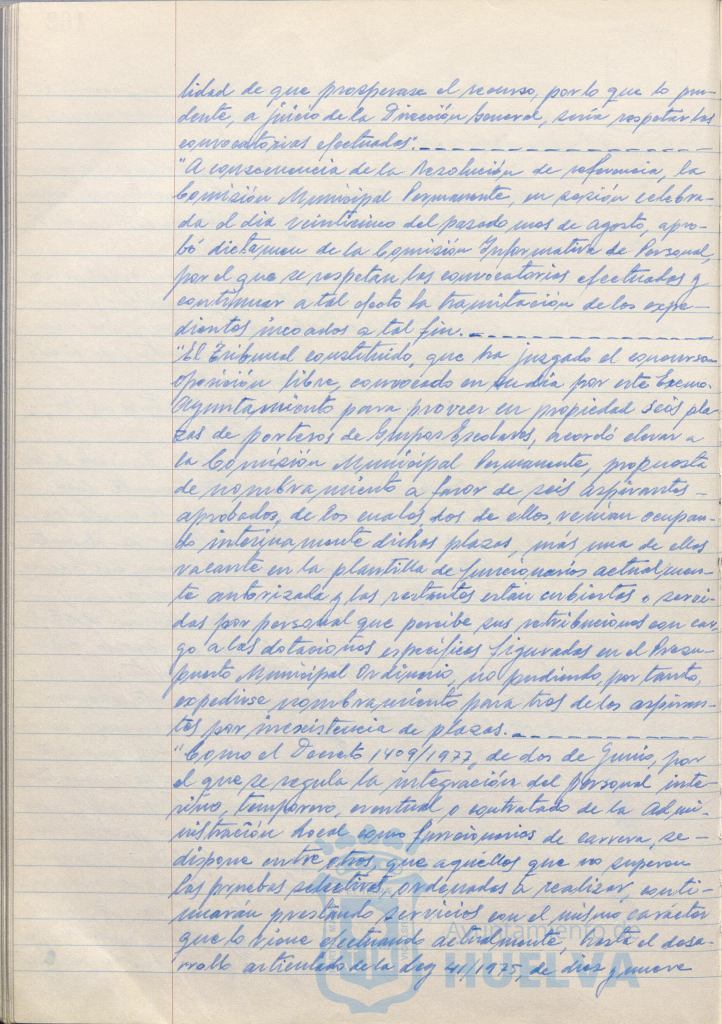 lidad de que prosperase el recurso, por lo que lo pru-
dente, a juicio de la Dirección General, sería respetar las
convocatorias efectuadas".
"A consecuencia de la Resolución de referencia, la
Comisión Municipal Permanente, en sesión celebra-
da el dia veinticinco del pasado mes de agosto, apro-
bó dictamen de la Comisión Informativa de Personal,
por el que se respetan las convocatorias efectuadas y
continuar a tal efecto la tramitación de los expe-
dientes incoados a tal fin.
"El Tribunal constituido, que ha juzgado el concurso
oposición libre, convocado en su dia por este Excmo.
Ayuntamiento para proveer en propiedad seis pla
zas de porteros de Grupos Escolares, acordó elevar a
la Comisión Municipal Permanente, propuesta
de nombramiento a favor de seis aspirantes
aprobados, de los cuales dos de ellos, venian ocupan-
do interinamente dichas plazas, más una de ellas
vacante en la plantilla de funcionarios actualmen-
te autorizada y las restantes están cubiertas o servi-
das por personal que percibe sus retribuciones con car-
go a las dotaciones específicas figuradas en el Presu-
puesto Municipal Ordinario, no pudiendo, por tanto,
expedirse nombramiento para tres de los aspiran-
tes por inexistencia de plazas.
"Como el Decreto 1409/1977, de dos de Junio, por
el que se regula la integración del personal inte-
rino, temporero, eventual o contratado de la Admi-
nistración Local como funcionarios de carrera, se
dispone entre otros, que aquellos que no superen
las pruebas selectivas, ordenadas a realizar, conti-
nuarán prestando servicios con el mismo carácter
que lo viene efectuando actualmente, hasta el desa-
rrollo articulado de la Ley 41/1975, de diez y nueve
Ayuntamiento de
HUELVA